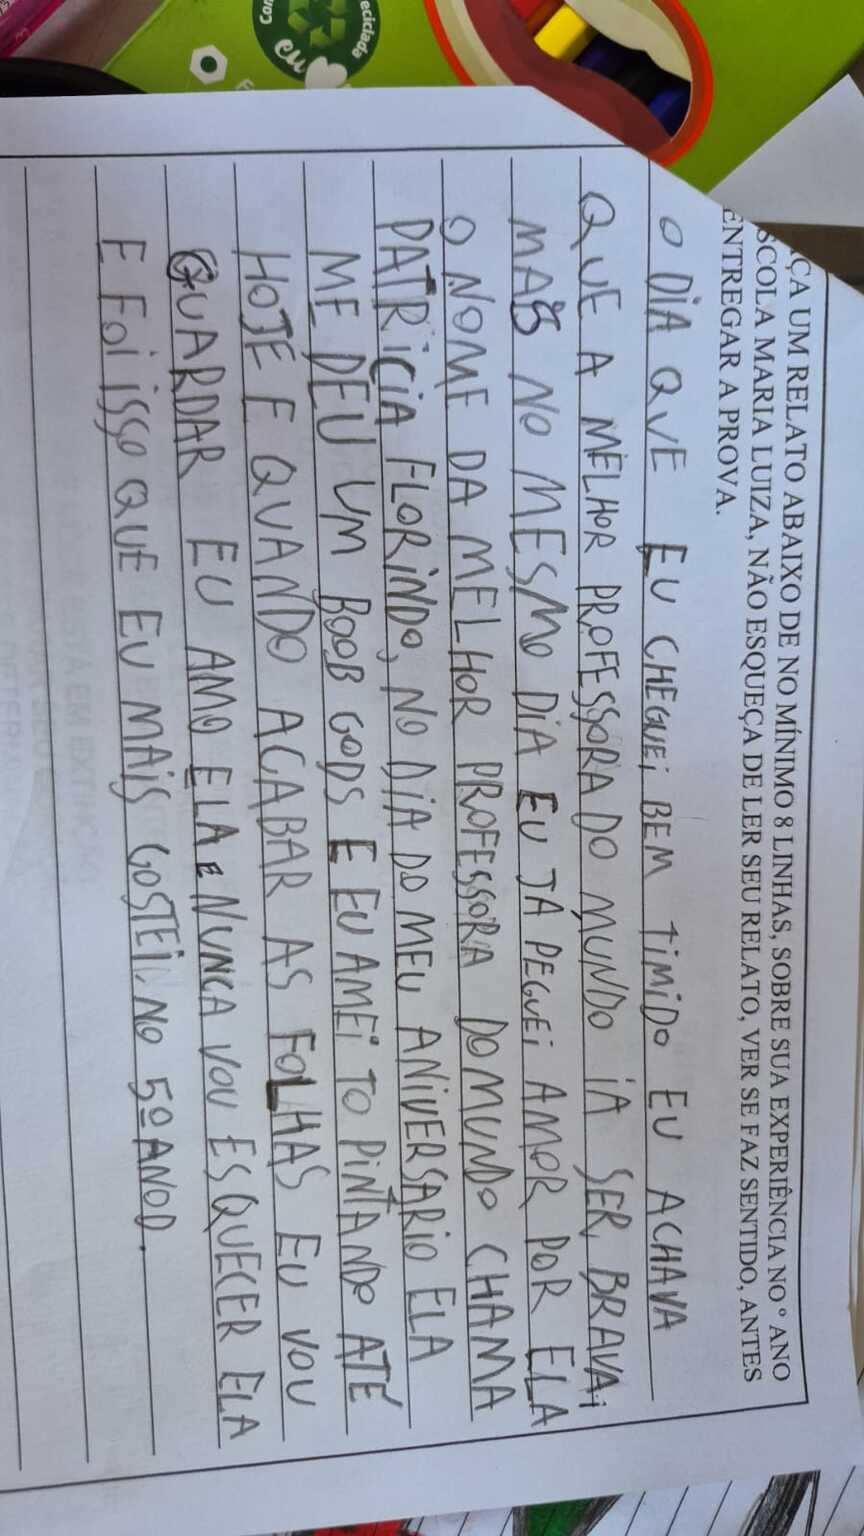 ÇA UM RELATO ABAIXO DE NO MÍNIMO 8 LINHAS, SOBRE SUA EXPERIÊNCIA NO º ANO
SCOLA MARIA LUIZA, NÃO ESQUEÇA DE LER SEU RELATO, VER SE FAZ SENTIDO, ANTES
ENTREGAR A PROVA.
O DIA QUE EU CHEGUEI BEM TIMIDO EU ACHAVA
QUE A MELHOR PROFESSORA DO MUNDO IA SER BRAVA,
MAS NO MESMO DIA EU JA PEGUEI AMOR POR ELA
O NOME DA MELHOR PROFESSORA DO MUNDO CHAMA
PATRICIA FLORINDO, NO DIA DO MEU ANIVERSARIO ELA
ME DEU UM BOOB GODS E EU AMEI TO PINTANDO ATÉ
HOJE E QUANDO ACABAR AS FOLHAS EU VOU
GUARDAR EU AMO ELA E NUNCA VOU ESQUECER ELA
E FOI ISSO QUE EU MAIS GOSTEI NO 5º ANOD.